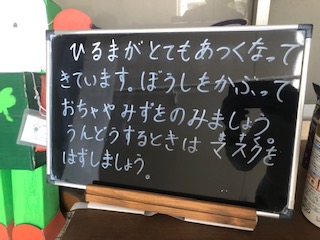 ひるまがとてもあつくなって
きています。ぼうしをかぶって
おちゃやみずをのみましょう。
うんどうするときはマスクを
ますく
はずしましょう。